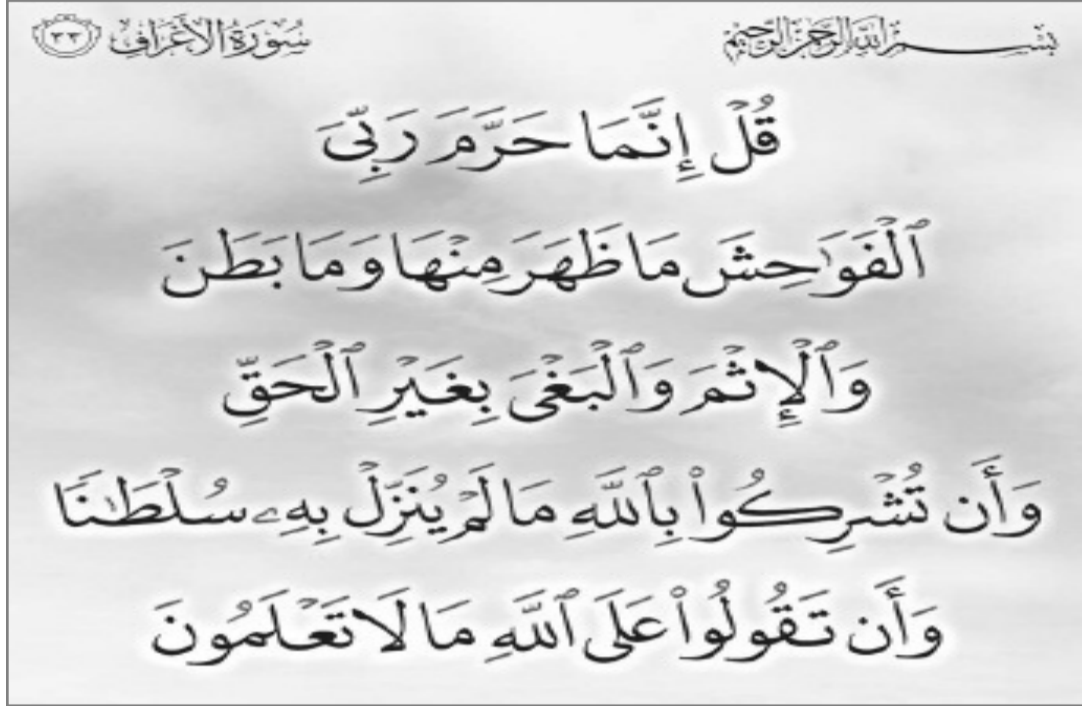 بِسْمِ اللَّهِ الرَّحْمَٰنِ الرَّحِيمِ سُورَةُ الْأَعْرَافِ ٣٣
قُلْ إِنَّمَا حَرَّمَ رَبِّىَ
ٱلْفَوَٰحِشَ مَا ظَهَرَ مِنْهَا وَمَا بَطَنَ
وَٱلْإِثْمَ وَٱلْبَغْىَ بِغَيْرِ ٱلْحَقِّ
وَأَن تُشْرِكُوا۟ بِٱللَّهِ مَا لَمْ يُنَزِّلْ بِهِۦ سُلْطَٰنًا
وَأَن تَقُولُوا۟ عَلَى ٱللَّهِ مَا لَا تَعْلَمُونَ